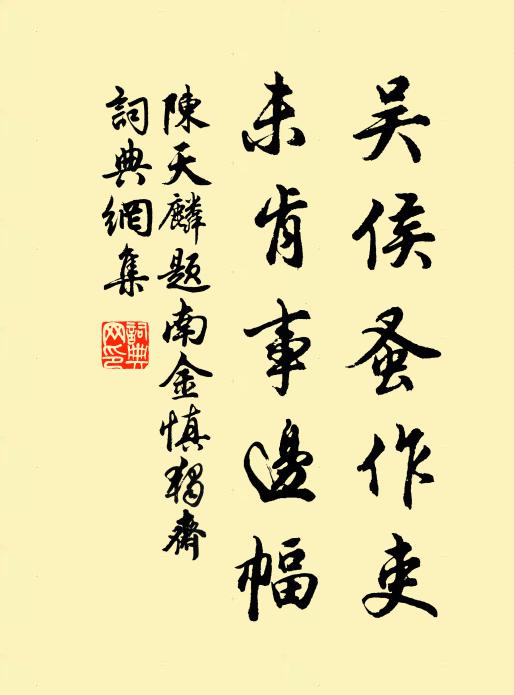 吴侯蚤作吏
未肯事邊幅
陳天麟題南金慎獨齋
詞典網集
詞典網印